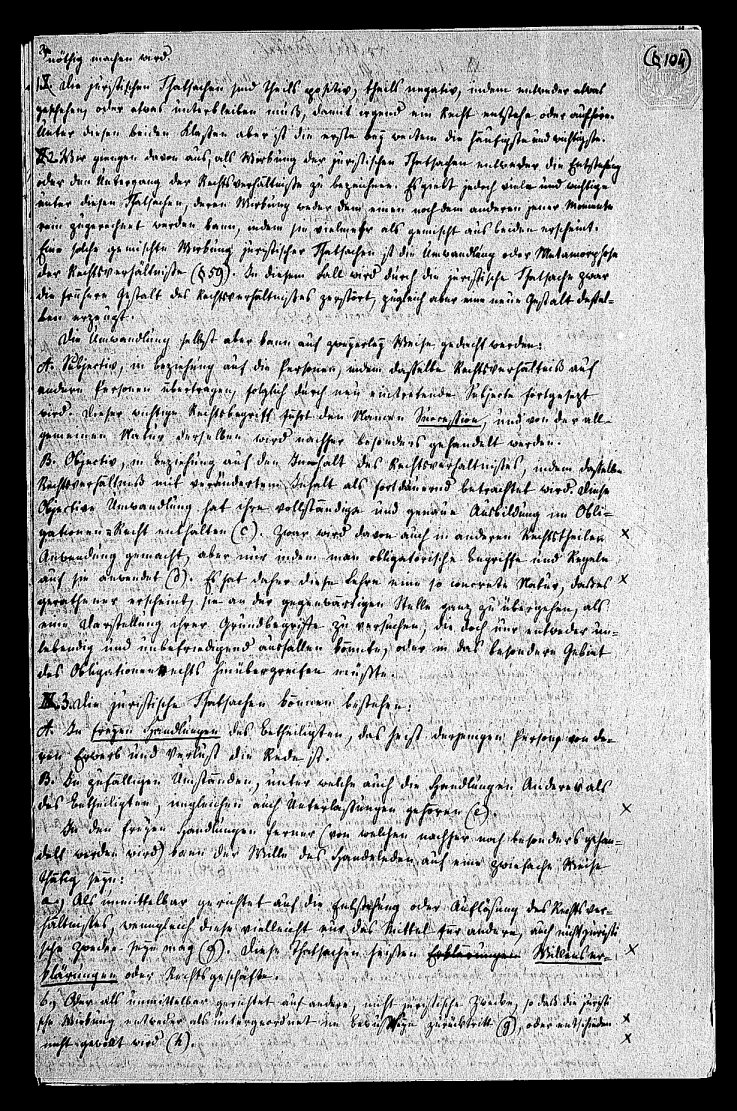 (§ 104)
nöthig machen wird.
1. Die juristischen Thatsachen sind theils positiv, theils negativ, indem entweder etwas
geschehen, oder etwas unterbleiben muß, damit irgend ein Recht entstehe oder aufhöre.
Unter diesen beiden Klassen aber ist die erste bey weitem die häufigste und wichtigste.
2. Wir giengen davon aus, als Wirkung der juristischen Thatsachen entweder die Entstehung
oder den Untergang der Rechtsverhältnisse zu bezeichnen. Es giebt jedoch viele und wichtige
unter diesen Thatsachen, deren Wirkung weder dem einen noch dem anderen jener Momente
rein zugerechnet werden kann, indem sie vielmehr als gemischt aus beiden erscheint.
Eine solche gemischte Wirkung juristischer Thatsachen ist die Umwandlung oder Metamorphose
der Rechtsverhältnisse (§ 59). In diesem Fall wird durch die juristische Thatsache zwar
die frühere Gestalt des Rechtsverhältnisses zerstört, zugleich aber eine neue Gestalt dessel-
ben erzeugt.
Die Umwandlung selbst aber kann auf zweyerley Weise gedacht werden:
A. Subjectiv, in Beziehung auf die Personen, indem dasselbe Rechtsverhältniß auf
andere Personen übertragen, folglich durch neu eintretende Subjecte fortgesetzt
wird. Dieser wichtige Rechtsbegriff führt den Namen Succession, und von der all-
gemeinen Natur derselben wird nachher besonders gehandelt werden.
B. Objectiv, in Beziehung auf den Innhalt des Rechtsverhältnisses, indem dasselbe
Rechtsverhältniß mit verändertem Inhalt als fortdauernd betrachtet wird. Diese
Objective Umwandlung hat ihre vollständige und genaue Ausbildung im Obli-
gationen-Recht enthalten (c). Zwar wird davon auch in anderen Rechtstheilen x
Anwendung gemacht, aber nur indem man obligatorische Begriffe und Regeln
auf sie anwendet (d). Es hat daher diese Lehre eine so concrete Natur, daß es x
gerathener erscheint, sie an der gegenwärtigen Stelle ganz zu übergehen, als
eine Darstellung ihrer Grundbegriffe zu versuchen, die doch nur entweder un-
lebendig und unbefriedigend ausfallen könnte, oder in das besondere Gebiet
des Obligationenrechts hinübergreifen müßte.
3. Die juristische Thatsachen können bestehen:
A. In freyen Handlungen des Betheiligten, das heist derjenigen Person, von de-
ren Erwerb und Verlust die Rede ist.
B. In zufälligen Umständen, unter welche auch die Handlungen Anderer als
des Betheiligten, ungleichen auch Unterlassungen gehören (e). x
In den freyen Handlungen ferner (von welchen nachher noch besonders gehan-
delt werden wird) kann der Wille des Handelnden auf eine zwiefache Weise
thätig seyn:
a.) Als unmittelbar gerichtet auf die Entstehung oder Auflösung des Rechtsver-
hältnisses, wenngleich diese vielleicht nur das Mittel für andere, auch nicht juristi
sche Zwecke seyn mag (g). Diese Thatsachen heißen Erklärungen Willenser- x
klärungen oder Rechtsgeschäfte.
b.) Oder als unmittelbar gerichtet auf andere, nicht juristische Zwecke, so daß die juristi
sche Wirkung entweder als untergeordnet im Bewußtseyn zurücktritt (g), oder entschieden x
nicht gewollt wird (h). x